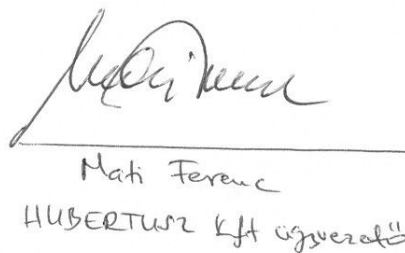 Mati Ferenc
HUBERTUSZ Kft ügyvezető